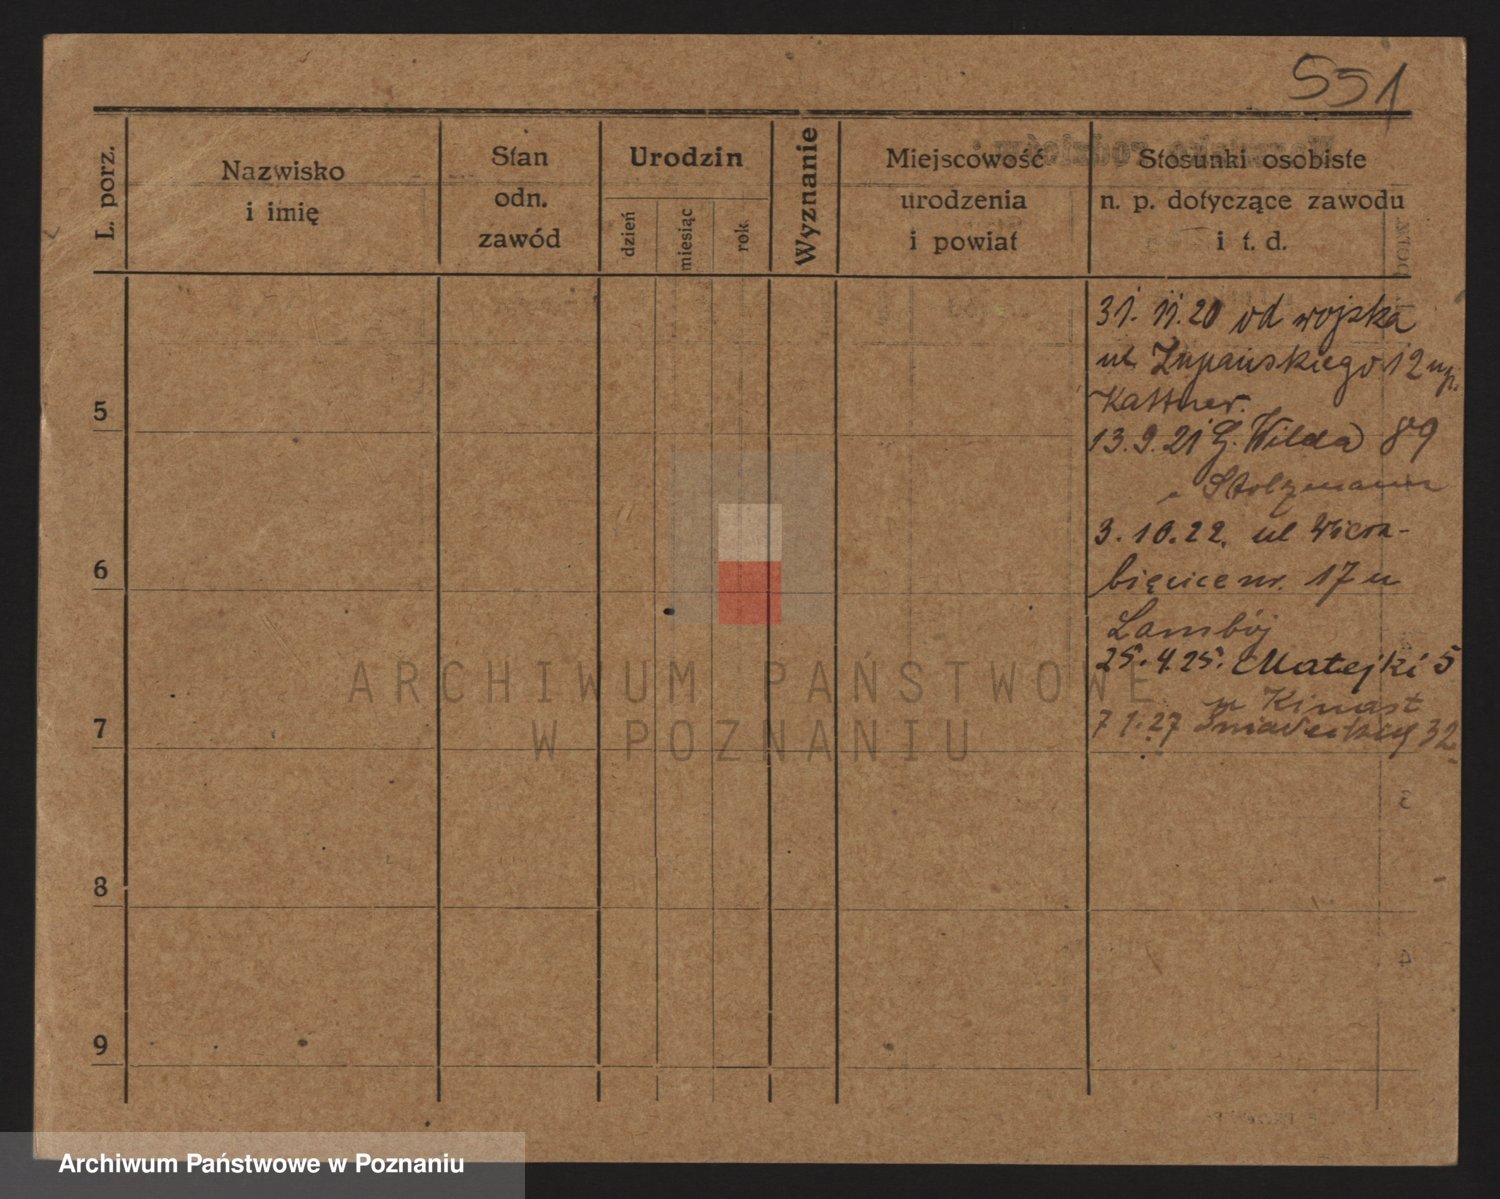 551
L. porz.
Nazwisko
i imię
Stan
odn.
zawód
Urodzin
dzień
miesiąc
rok
Wyznanie
Miejscowość
urodzenia
i powiat
Stosunki osobiste
n. p. dotyczące zawodu
i t. d.
31. 11. 20 od wojska
ul Żupańskiego 12
Kattner.
5
13. 9. 21 G. Wilda 89
Stolzmann
3. 10. 22. ul Wierz-
6
bięcice nr. 17 u
Lambój
25. 4. 25. Matejki 5
u Kinast
7
7 1. 27 Śniadeckich 32
8
9
3
4
ARCHIWUM PAŃSTWOWE
W POZNANIU
Archiwum Państwowe w Poznaniu